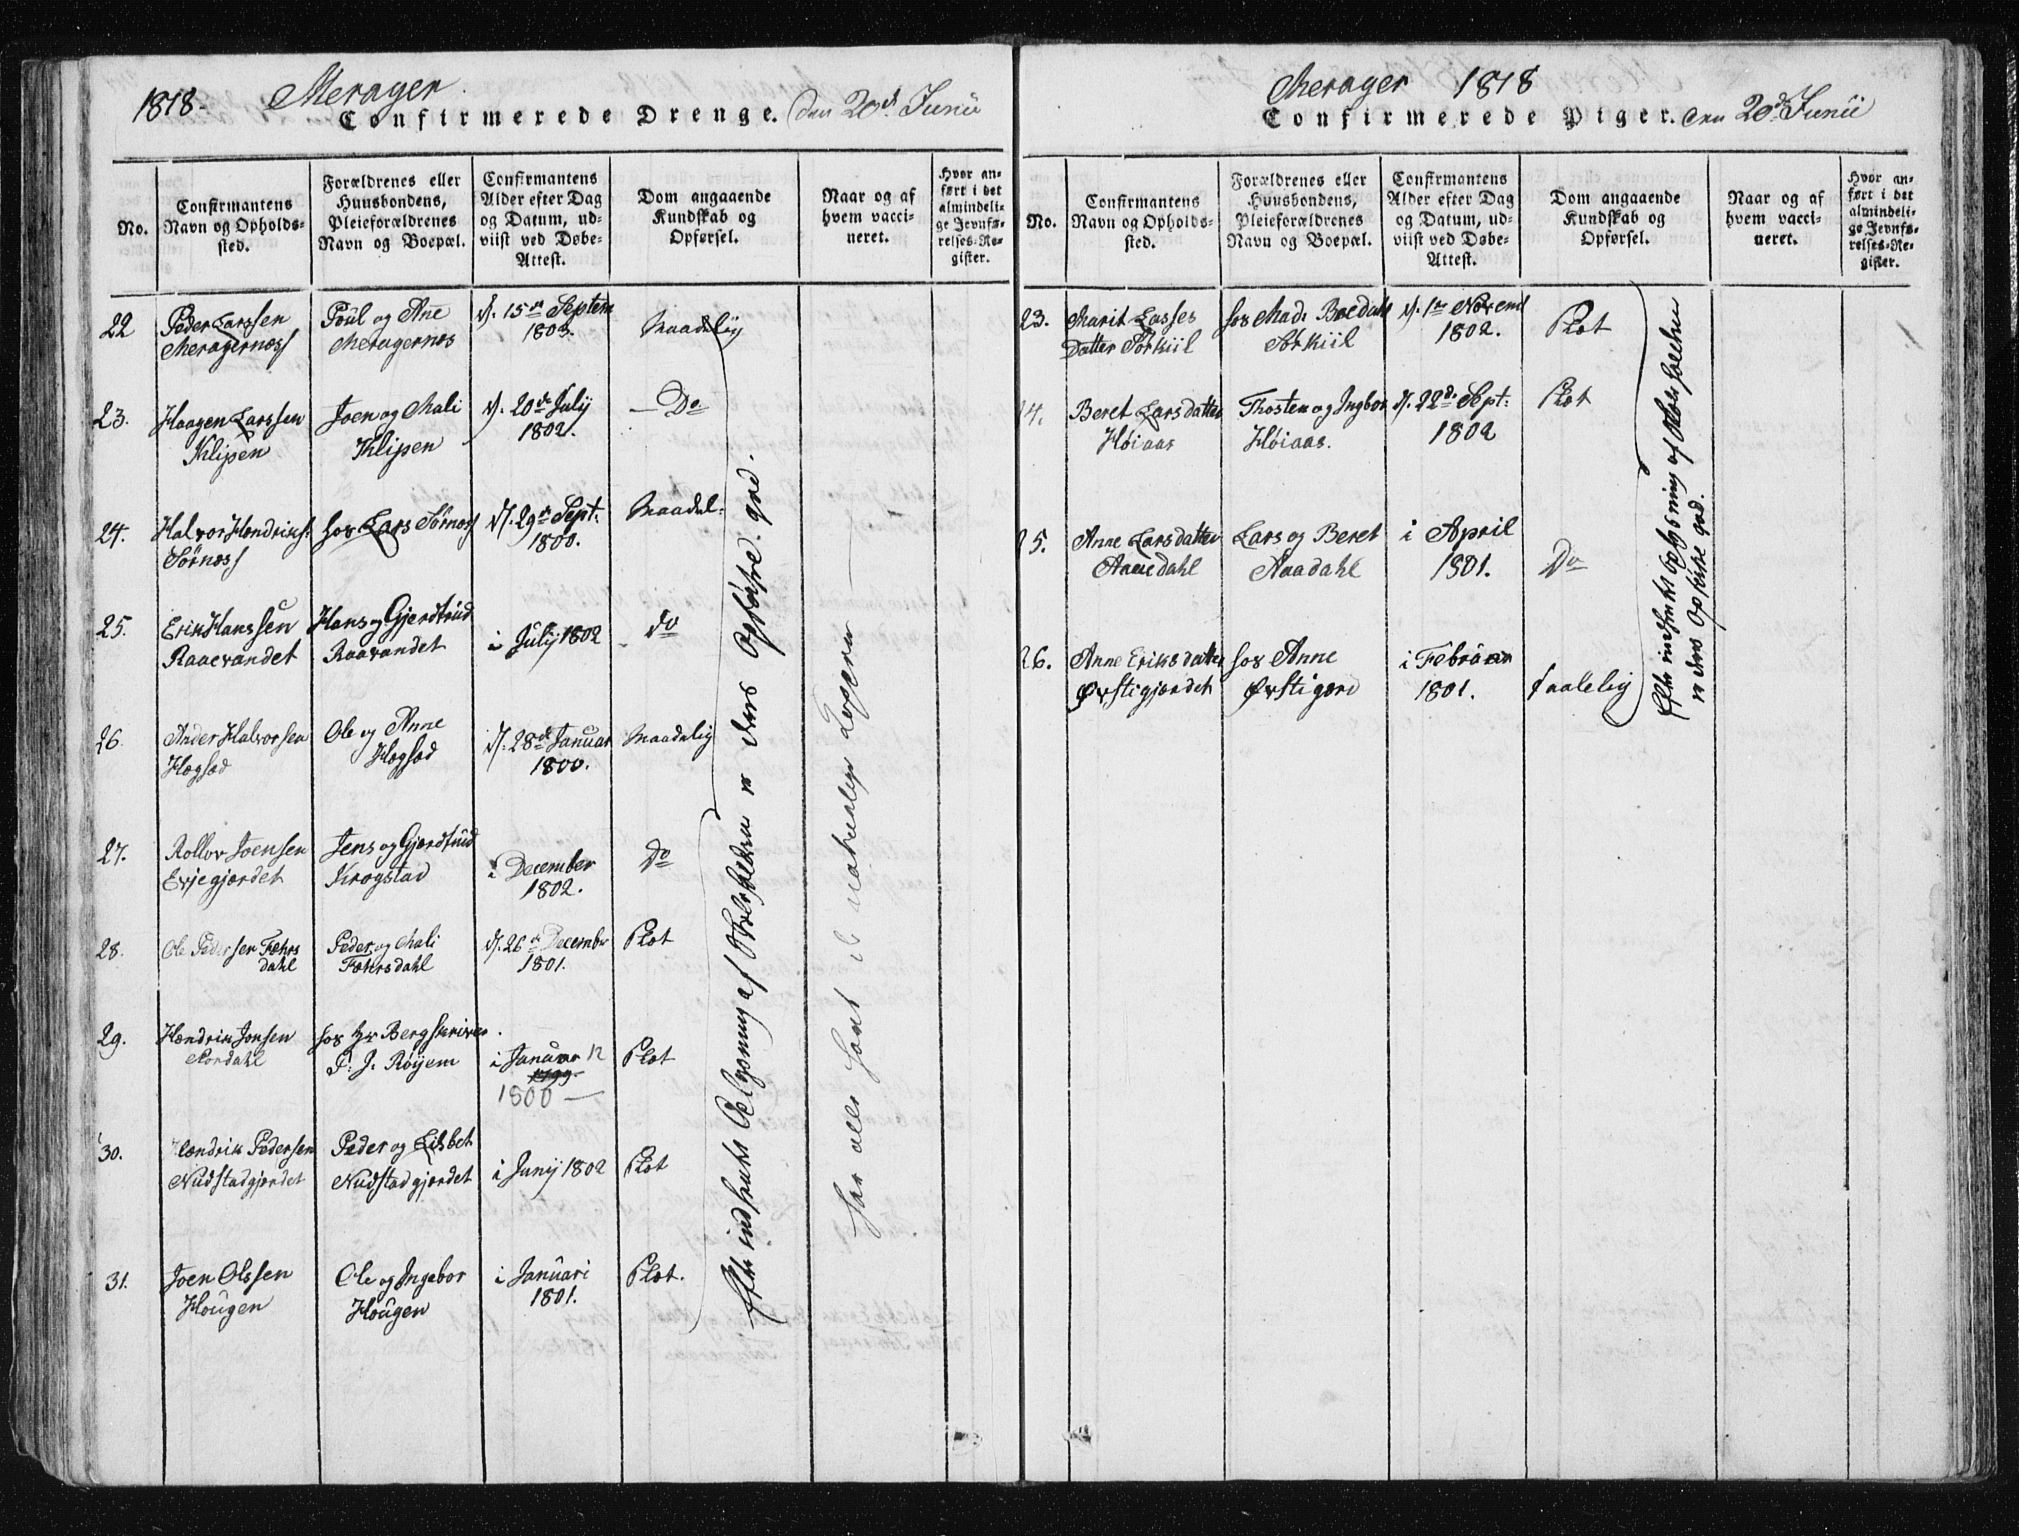 1818.
Merager
Confirmerede Drenge. den 20d Junii
No.
Confirmantens
Navn og Opholds-
sted.
Forældrenes eller
Huusbondens,
Pleieforældrenes
Navn og Boepæl.
Confirmantens
Alder efter Dag
og Datum, ud-
viist ved Døbe-
Attest.
Dom angaaende
Kundskab og
Opførsel.
Naar og af
hvem vacci-
neret.
Hvor an-
ført i det
almindeli-
ge Jevnfø-
relses-Re-
gister.
22
Peder Larssen
Meragernæss
Poul og Ane
Meragernes
d. 15n Septem
1802.
Maadelig
23.
Haagen Larssen
Klipen
Joen og Mali
Klipen
d. 20de July
1802.
Do
24.
Halvor Hendriks:
Sørnæss
hos Lars Sørnæss
d. 29n Sept:
1800.
Maadel:
25.
Erik Hanssen
Raaevandet
Hans og Gjerdtrud
Raavandet
i July 1802
Do
26.
Ander Halvorsen
Hægsed
Ole og Anne
Hægsæd
d. 28d Januar
1800.
Maadelig
27.
Rollov Joensen
Evjegjærdet
Jens og Gjærdtrud
Krogstad
i December
1802.
Do
28.
Ole Pedersen Fæhrs
dahl
Peder og Mali
Fæhrsdahl
d. 26n December
1801.
Slet
29.
Hændrik Jonsen
Nordahl
hos Hr Bergskriver
P. J. Røyem
i Januar 12
1799.
1800 —
Slet
30.
Hændrik Pedersen
Nustadgjærdet
Peder og Lisbet
Nustadgjærdet
i Juny 1802
Slet
31.
Joen Olssen
Hougen
Ole og Ingebor
Hougen
i Januari
1801.
Slet.
af deres god.
har alle havt de naturlige
Merager 1818
Confirmerede Piger. den 20d Junii
No.
Confirmantens
Navn og Opholds-
sted.
Forældrenes eller
Huusbondens,
Pleieforældrenes
Navn og Boepæl.
Confirmantens
Alder efter Dag
og Datum, ud-
viist ved Døbe-
Attest.
Dom angaaende
Kundskab og
Opførsel.
Naar og af
hvem vacci-
neret.
Hvor an-
ført i det
almindeli-
ge Jevnfø-
relses-Re-
gister.
23.
Marit Lasses
datter Torkiil
hos Mad: Boedahl
Torkiil
d. 1n Novemb
1802.
Slet
24.
Beret Larsdatter
Høiaas
Thosten og Ingbor
Høiaas.
d. 22d Sept:
1802
Slet
25.
Anne Larsdatter
Aaedahl
Lars og Beret
Aaadahl
i April
1801.
Do
26.
Anne Eriksdatter
Østigjærdet
hos Anne
Østigære
i Februar
1801.
taalelig
er deres Opførsel god.